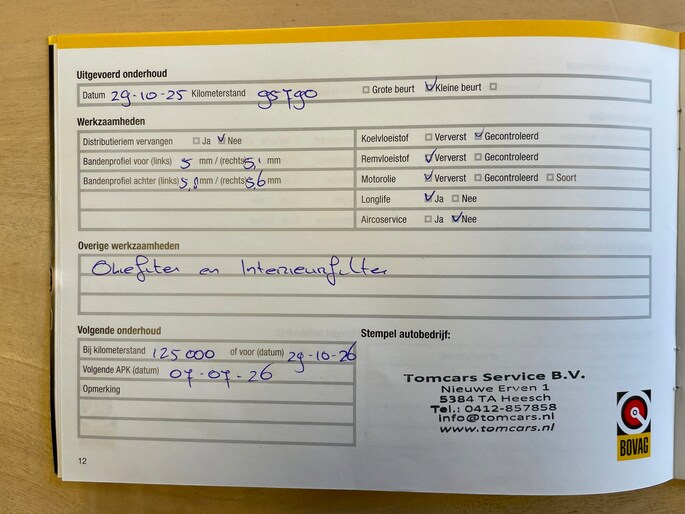 Uitgevoerd onderhoud
Datum 29-10-25 Kilometerstand 95790 Grote beurt Kleine beurt
Werkzaamheden
Distributieriem vervangen Ja Nee
Bandenprofiel voor (links) 5 mm / (rechts) 5,1 mm
Bandenprofiel achter (links) 5,0 mm / (rechts) 5,6 mm
Koelvloeistof Ververst Gecontroleerd
Remvloeistof Ververst Gecontroleerd
Motorolie Ververst Gecontroleerd Soort
Longlife Ja Nee
Aircoservice Ja Nee
Overige werkzaamheden
Oliefilter en Interieurfilter
Volgende onderhoud
Bij kilometerstand 125000 of voor (datum) 29-10-26
Volgende APK (datum) 07-07-26
Opmerking
Stempel autobedrijf:
Tomcars Service B.V.
Nieuwe Erven 1
5384 TA Heesch
Tel.: 0412-857858
info@tomcars.nl
www.tomcars.nl
BOVAG
12